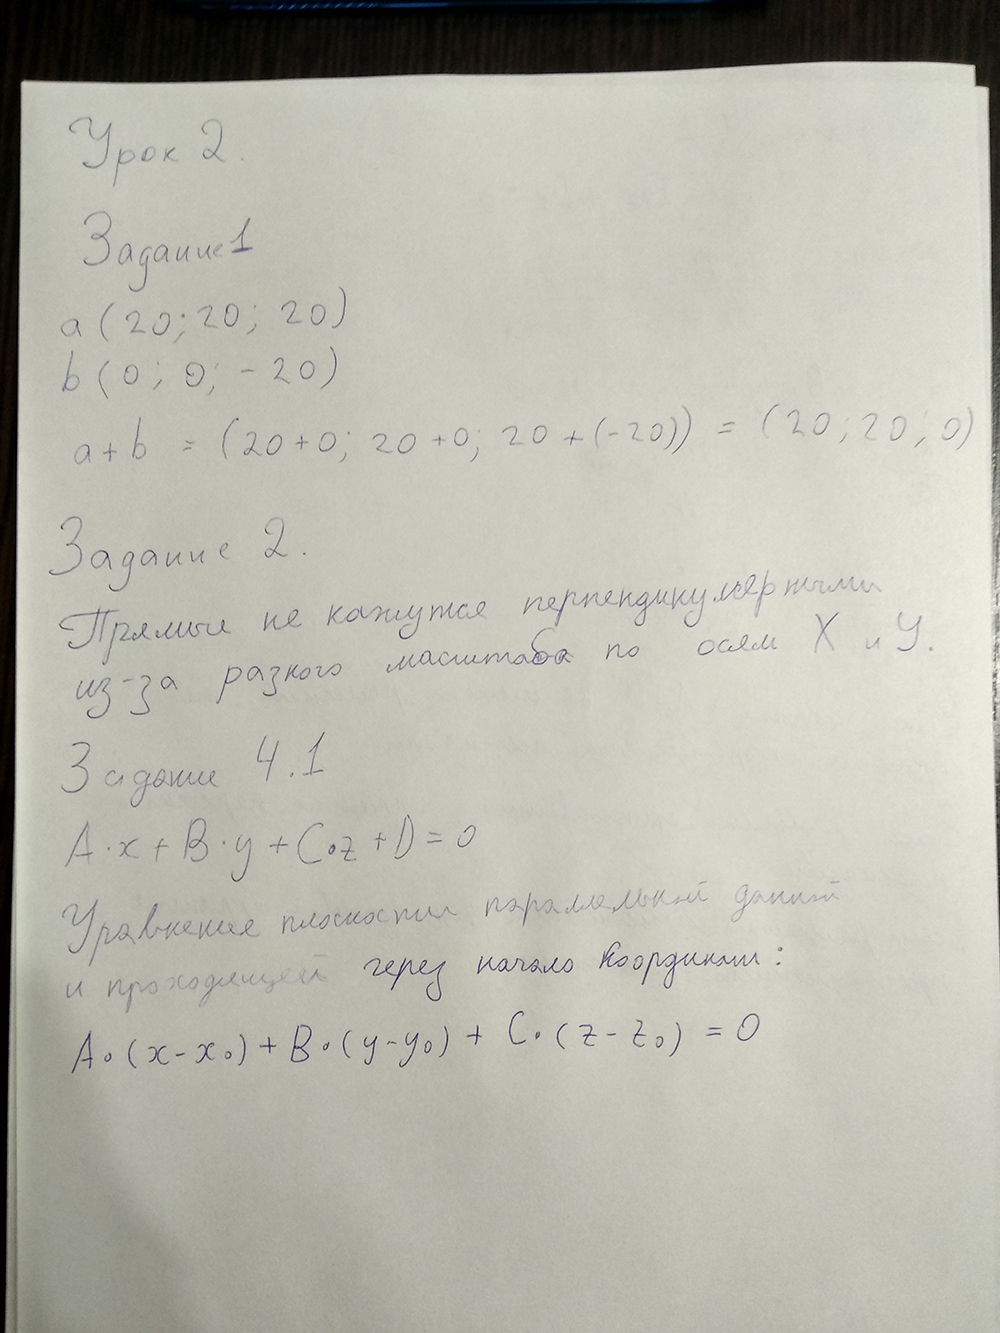 Урок 2.
Задание 1
a (20; 20; 20)
b (0; 0; -20)
a+b = (20+0; 20+0; 20+(-20)) = (20; 20; 0)
Задание 2.
Прямые не кажутся перпендикулярными
из-за разного масштаба по осям X и Y.
Задание 4.1
A·x+B·y+C·z+D=0
Уравнение плоскости параллельной данной
и проходящей через начало координат:
A·(x-x₀)+B·(y-y₀)+C·(z-z₀)=0